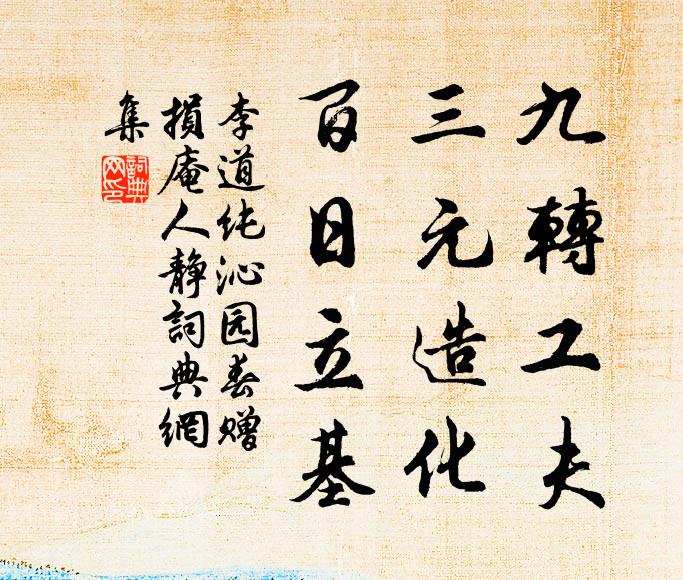 九轉工夫
三元造化
百日立基
李道纯沁园春赠
損庵人静詞典網
集
詞典网印